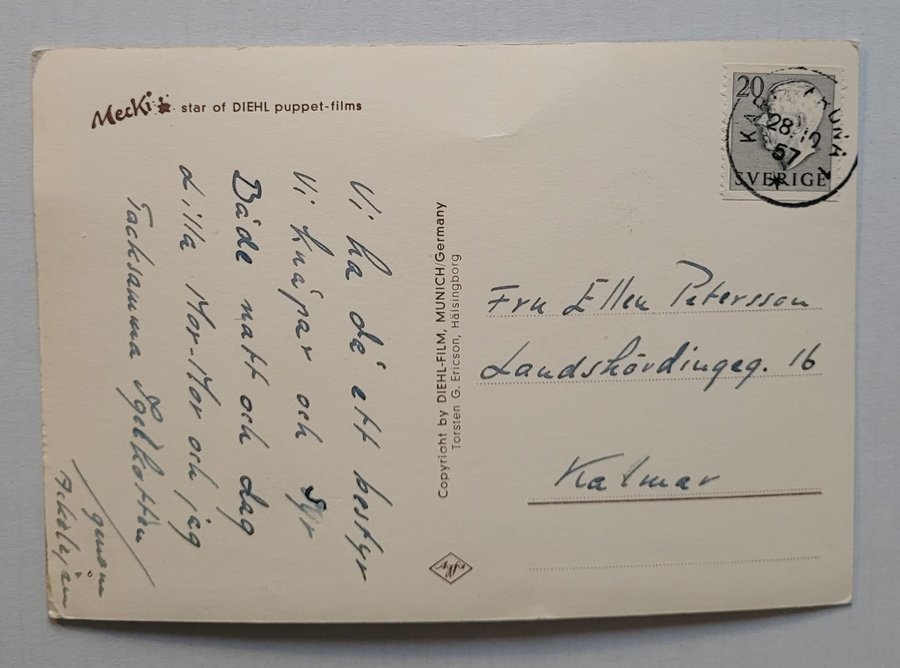 Mecki: star of DIEHL puppet-films
20
28.10
57
SVERIGE
Vi ha då ett bestyr
Vi knåpar och syr
Både natt och dag
Lilla Mor-Mor och jag
Tacksamma Igelkotten
genom
Copyright by DIEHL-FILM, MUNICH/Germany
Torsten G. Ericson, Hälsingborg
Fru Ellen Petersson
Landshördingeg. 16
Kalmar